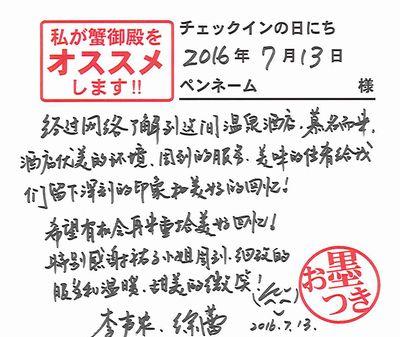 私が蟹御殿を
オススメ
します!!
チェックインの日にち
2016年 7月13日
ペンネーム 様
经过网络了解到这间温泉酒店,慕名而来,
酒店优美的环境、周到的服务、美味的住肴给我
们留下深刻的印象和美好的回忆!
希望有机会再来重拾美好回忆!
特别感谢祐子小姐周到、细致的
服务和温暖、甜美的微笑!
李市农、徐蕾
2016.7.13.
お墨
つき